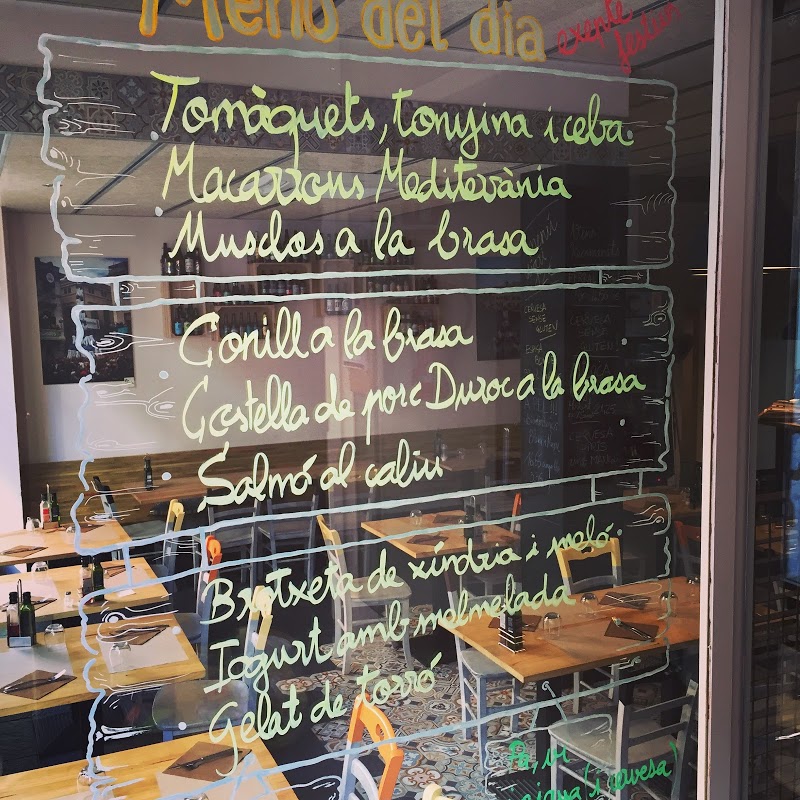 Menú del dia
excepte festius
Tomàquets, tonyina i ceba
Macarrons Mediterrània
Musclos a la brasa
Conill a la brasa
Costella de porc Duroc a la brasa
Salmó al caliu
Brotxeta de xíndria i meló
Iogurt amb melmelada
Gelat de torró
Pa, vi
aigua i cervesa!
CERVESA
SENSE
GLUTEN